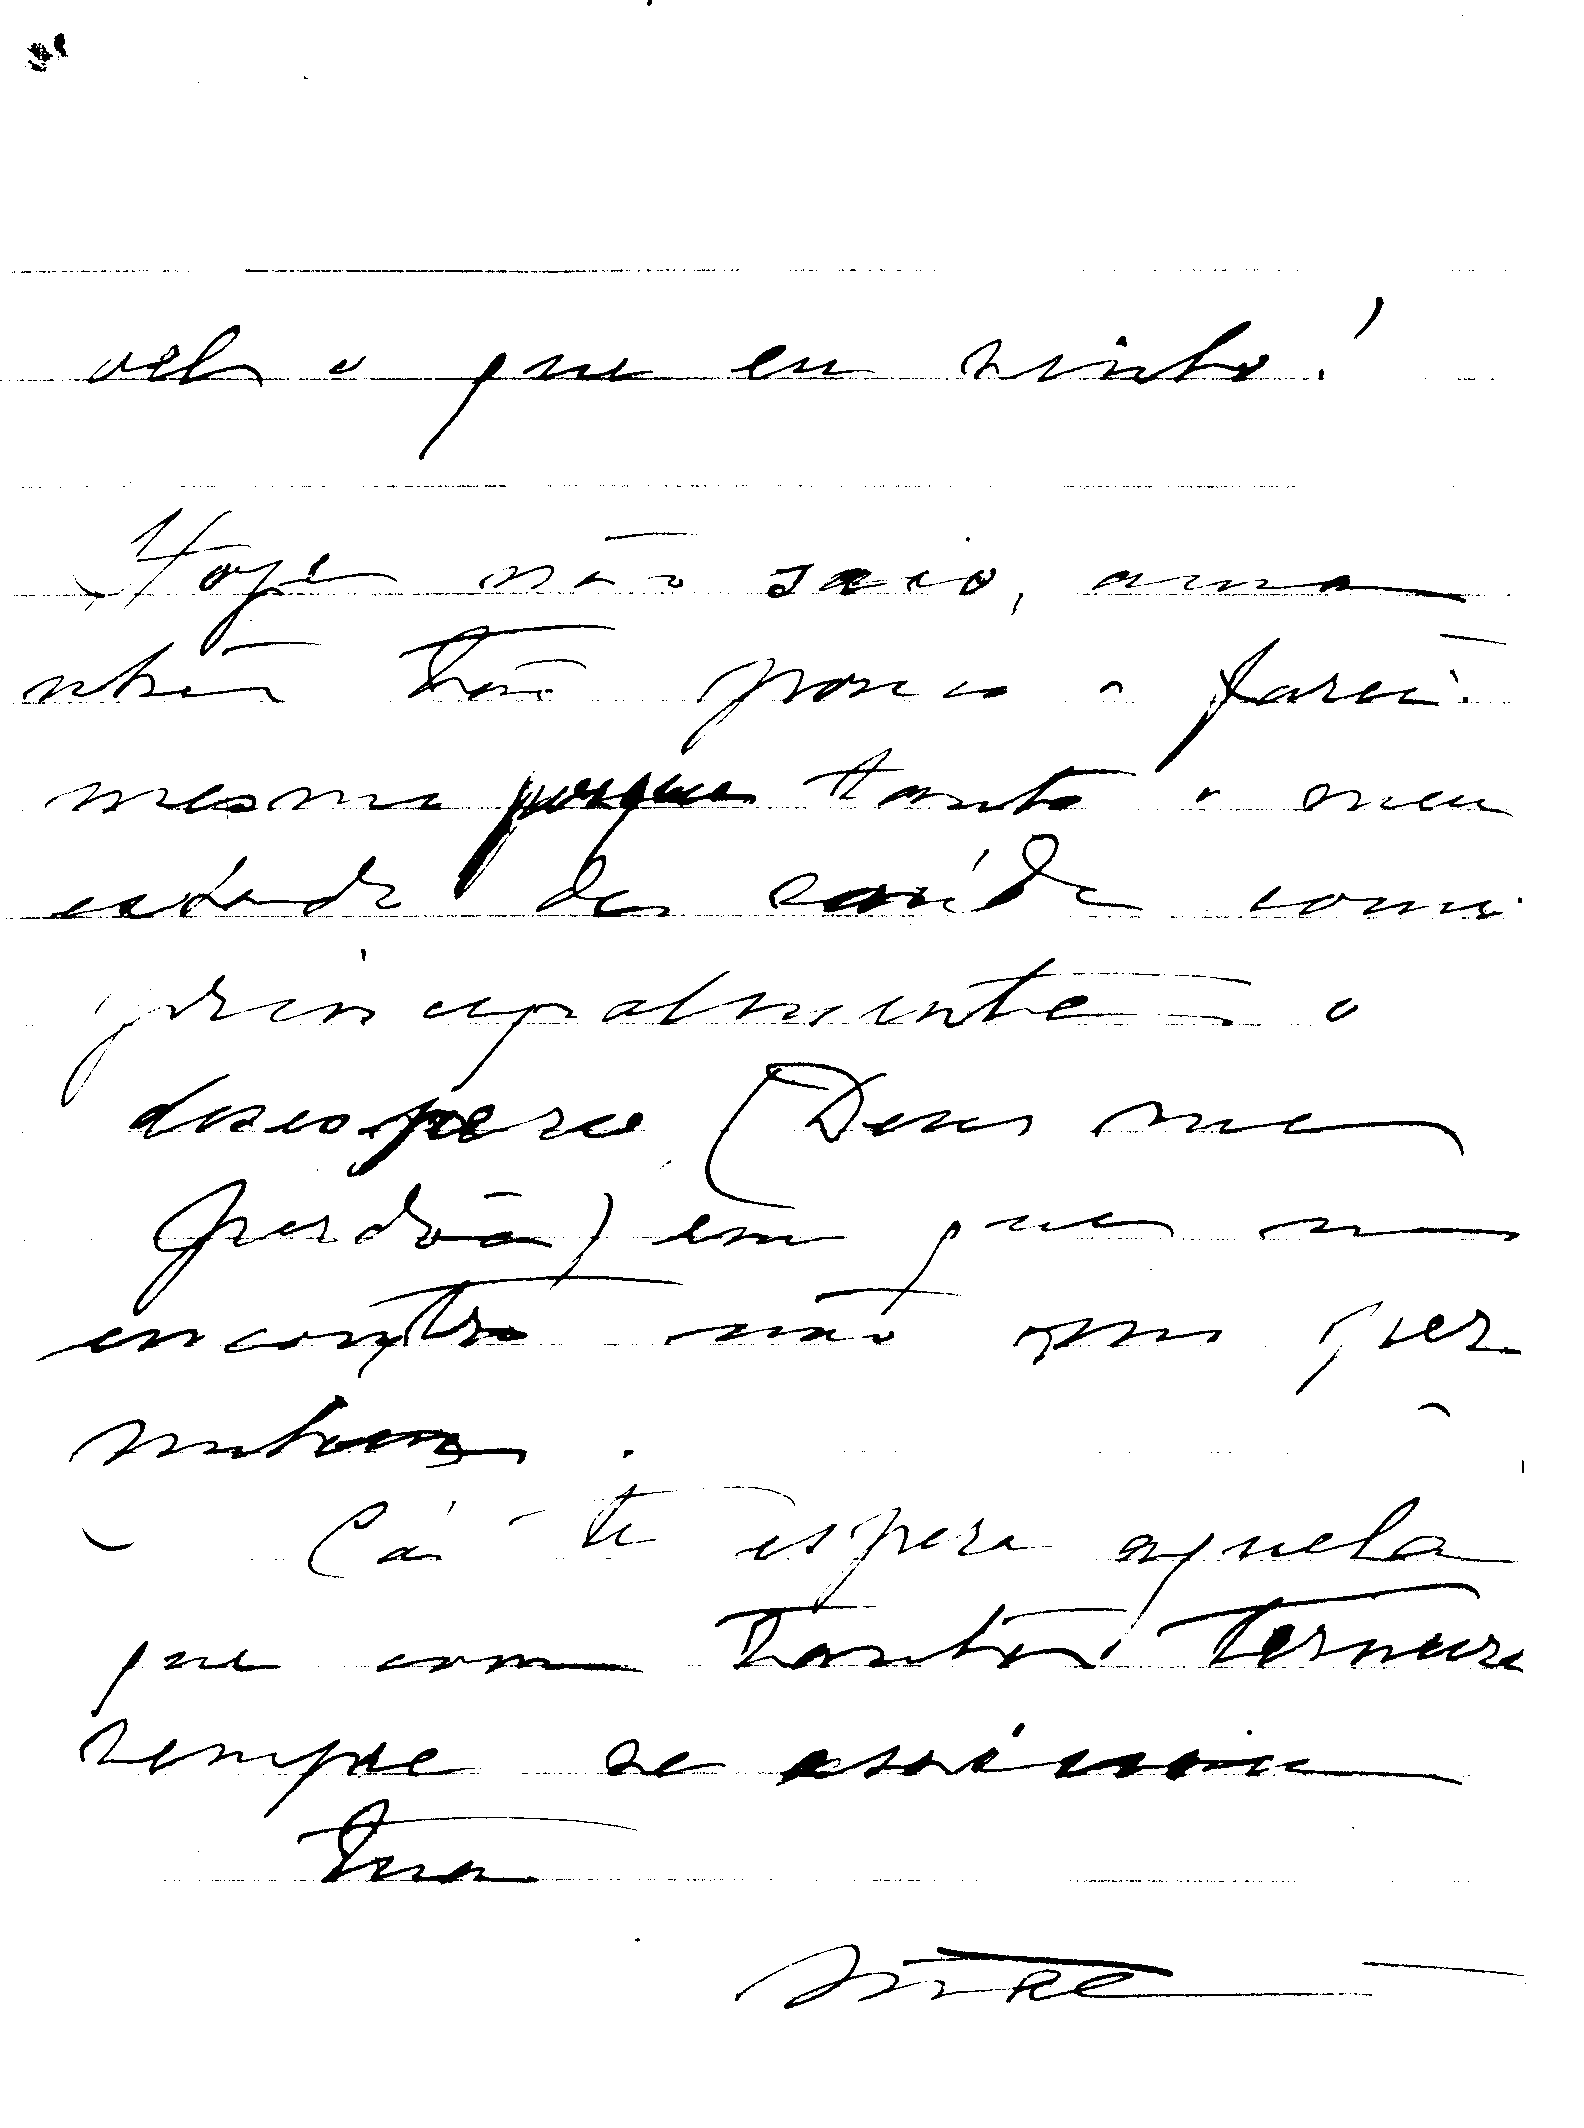 vel o que eu sinto!
Hoje não saio, ama
nhã tão pouco o farei.
mesmo porque tanto o meu
estado de saúde como
principalmente o
desespero (Deus me
perdôa) em que me
encontro não m'o per
mitem.
Cá te espera aquela
que com tanta ternura
sempre se assina
tua
Mãe